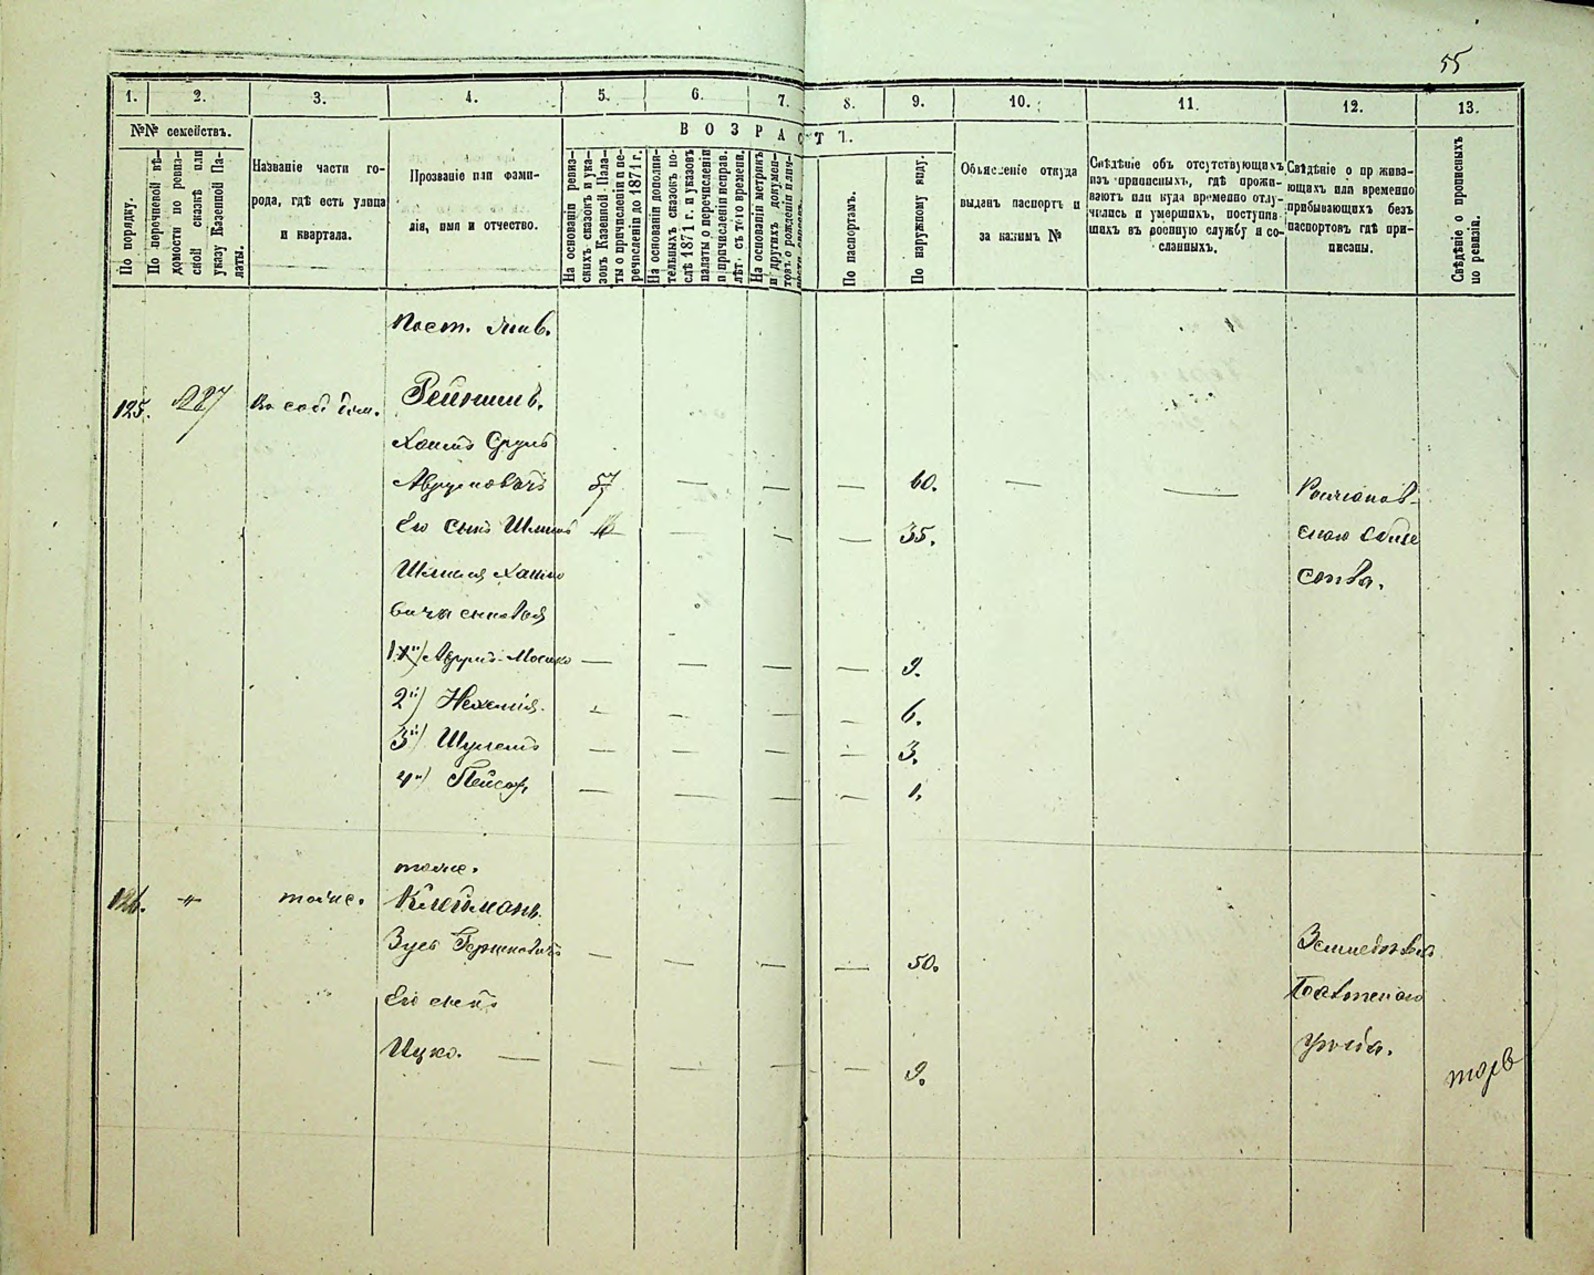 55
1. 2. 3. 4. 5. 6. 7. 8. 9. 10. 11. 12. 13.
№№ семействъ.
В О З Р А С Т Ъ.
По порядку.
По перечневой вѣ-
домости по ревиз-
ской сказкѣ или
указу Казенной Па-
латы.
Названіе части го-
рода, гдѣ есть улица
и квартала.
Прозваніе или фами-
лія, имя и отчество.
На основаніи ревиз-
скихъ сказокъ и ука-
зовъ Казенной Пала-
ты о причисленіи и пе-
речисленіи до 1871 г.
На основаніи дополни-
тельныхъ сказокъ по-
слѣ 1871 г. и указовъ
палаты о перечисленіи
и причисленіи исправ.
лѣт. съ того времени.
На основаніи метрикъ
и другихъ докумен-
товъ о рожденіи и лич-
По паспортамъ.
По наружному виду.
Объясненіе откуда
выданъ паспортъ и
за какимъ №
Свѣдѣніе объ отсутствующихъ
изъ приписныхъ, гдѣ прожи-
ваютъ или куда временно отлу-
чились и умершихъ, поступив-
шихъ въ военную службу и со-
сланныхъ.
Свѣдѣніе о прожива-
ющихъ или временно
прибывающихъ безъ
паспортовъ гдѣ при-
писаны.
Свѣдѣніе о прописныхъ
по ревизіи.
125. 227
Хаимъ Сруль
Аврумовичъ 57 — — — 60. — —
Его сынъ Шмиль — — — 35.
вича сыновья
1й) Аврумъ-Мошко — — — — 9.
2й) Нехемія. — — — — 6.
3й) Шулемъ — — — — 3.
4й) Пейсах, — — — — 1.
тоже.
126. " тоже. Клейманъ
Зусь Гершковичъ — — — — 50.
Его сынъ
Ицко. — — — — — 9.